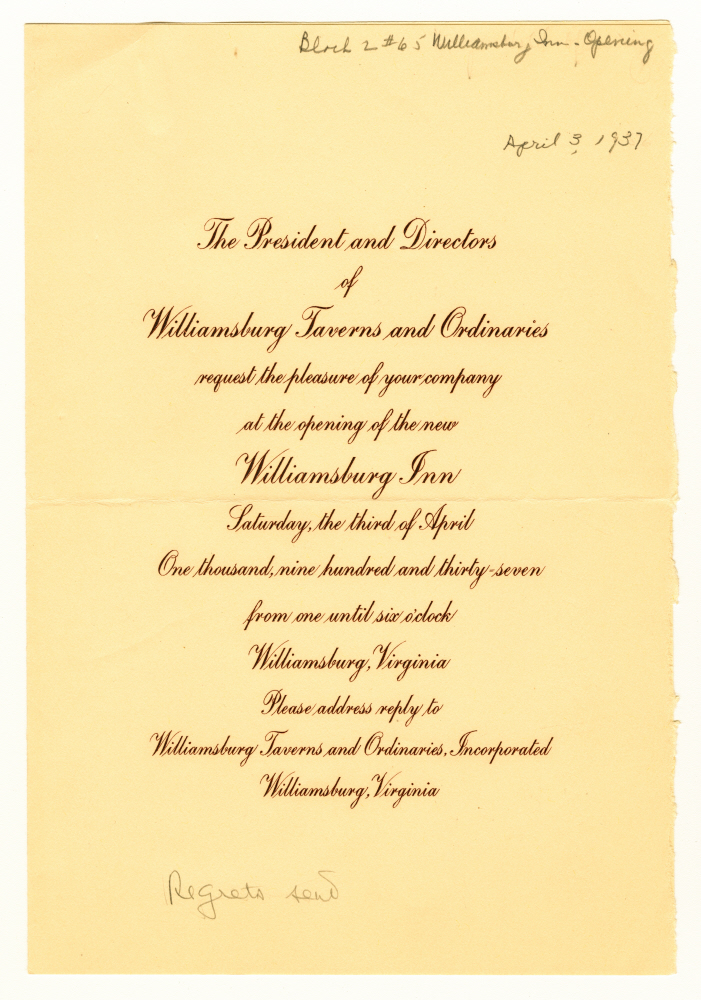 Block 2 #65 Williamsburg Inn - Opening
April 3, 1937
The President and Directors
of
Williamsburg Taverns and Ordinaries
request the pleasure of your company
at the opening of the new
Williamsburg Inn
Saturday, the third of April
One thousand, nine hundred and thirty-seven
from one until six o'clock
Williamsburg, Virginia
Please address reply to
Williamsburg Taverns and Ordinaries, Incorporated
Williamsburg, Virginia
Regrets send